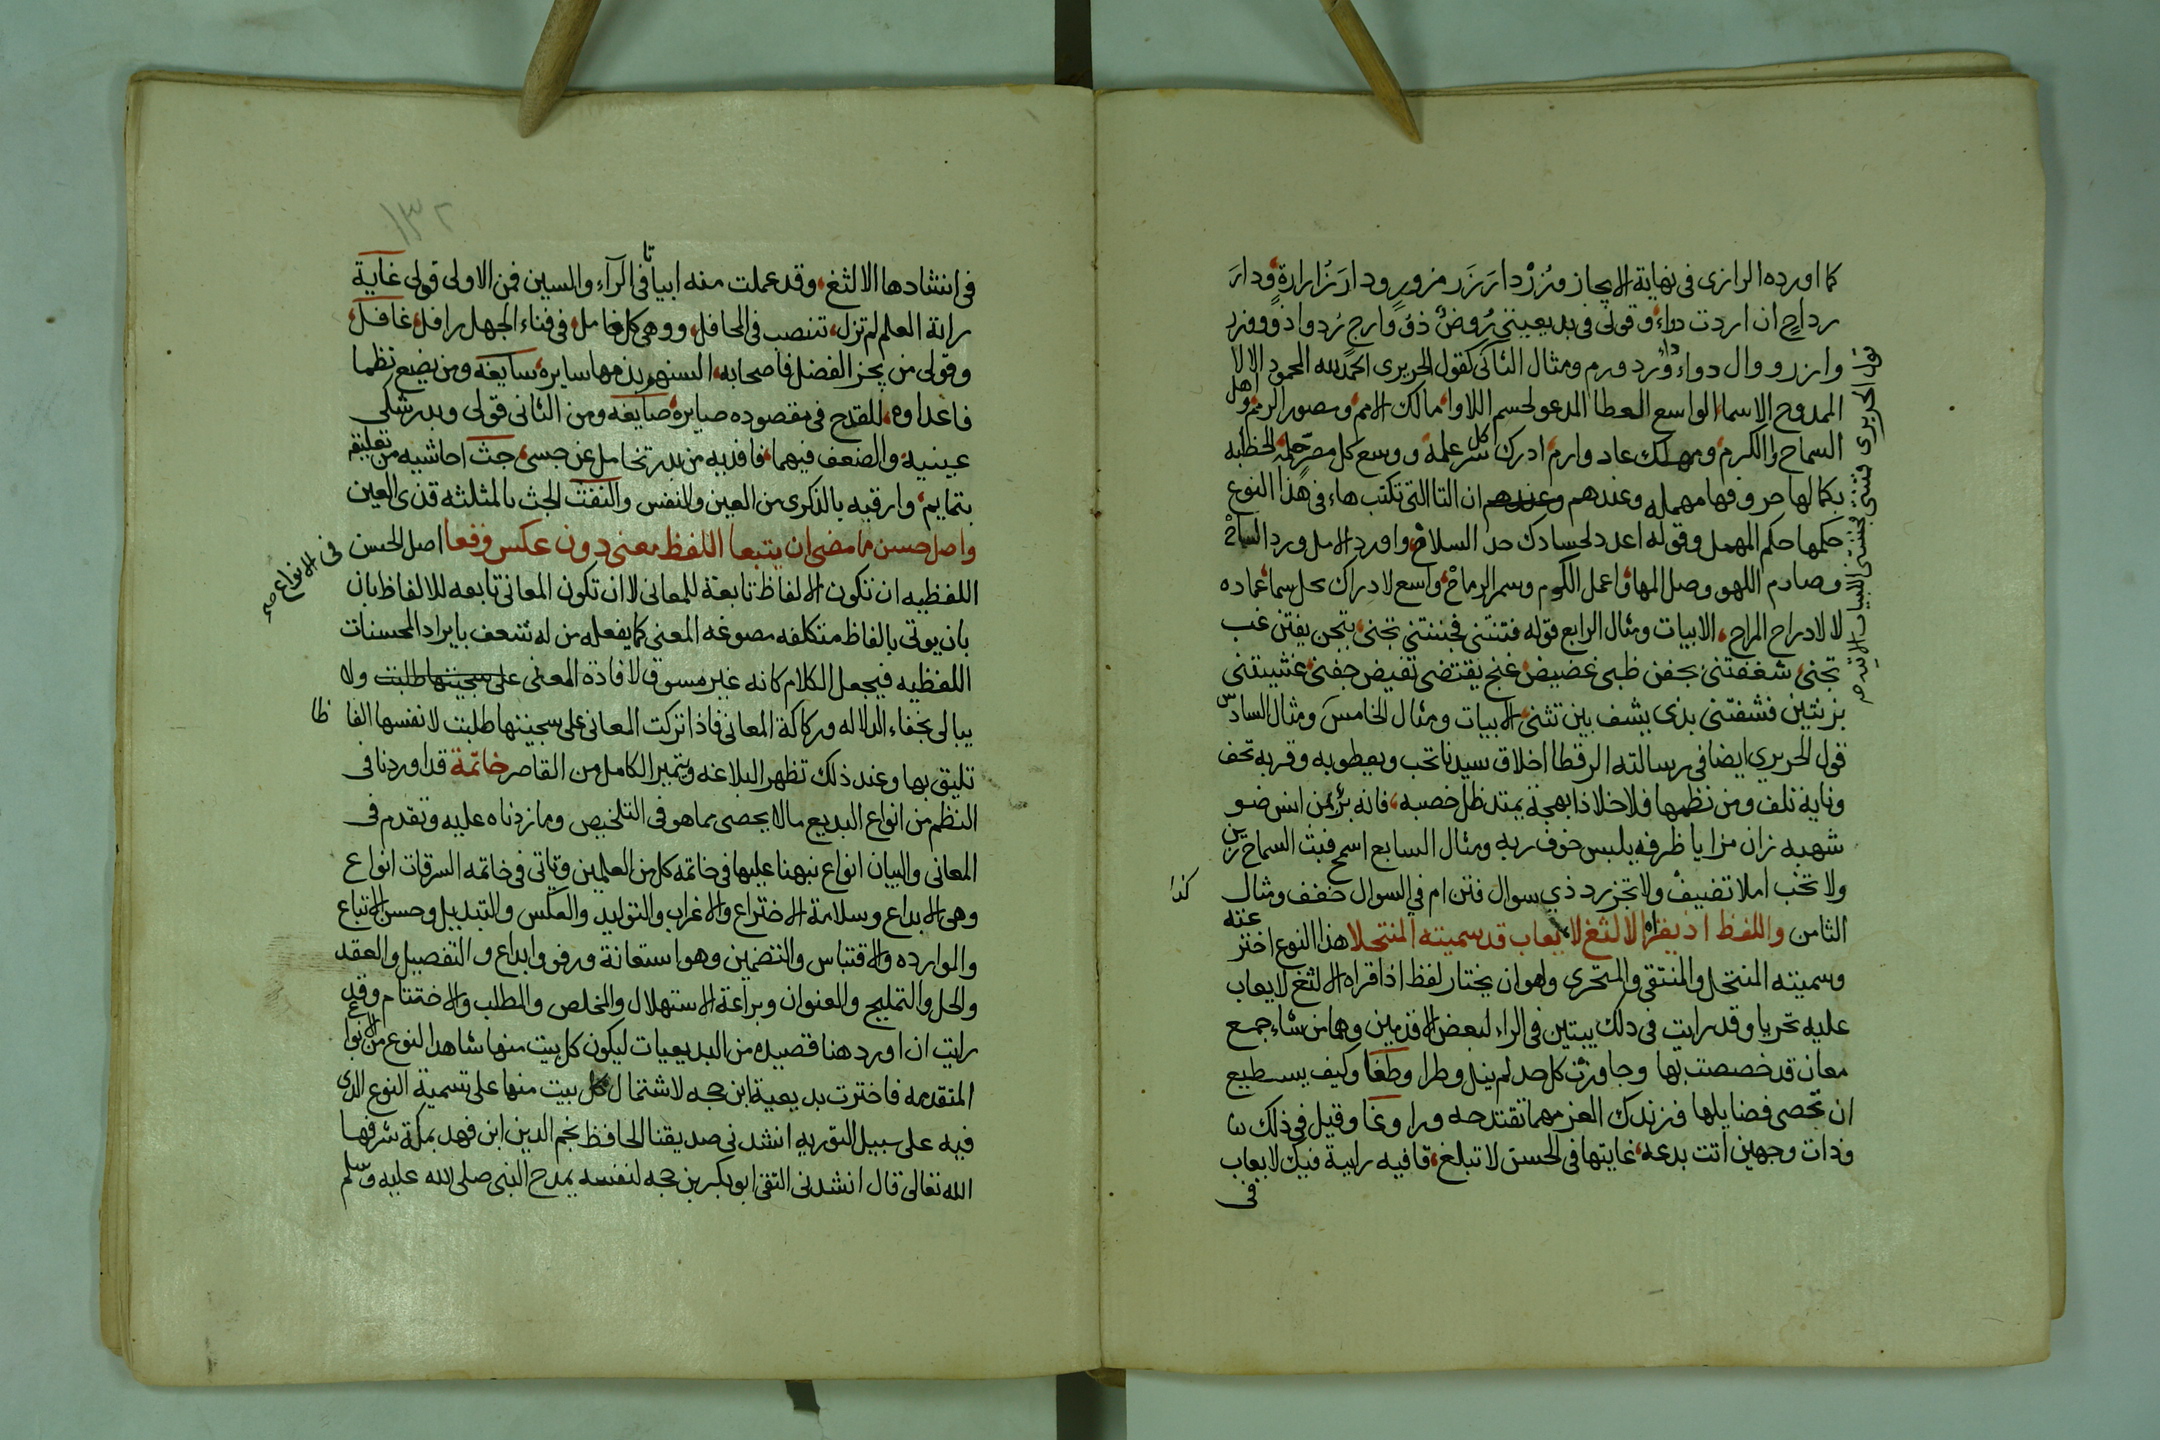 كما اورده الرازى فى نهاية الايجاز وزر دار زر مزور ودار زرارة ودار
رداح ان اردت دواء وقولى فى بديعيتى روض ذو وارج زد واذ ووزد
وارزو وال دواء داء ورد ورم ومثال الثانى كقول الحريرى الحمد لله المحمود الالا
الممدوح الاسماء الواسع العطا المدعو لحسم اللاوا مالك الامم ومصور الرمم واهل
السماح والكرم ومهلك عاد وارم ادرك كل سر علمه ووسع كل مصر حلمه الخطبه
بكمالها حروفها مهمله وعندهم ان التا التى تكتب هاء فى هذا النوع
حكمها حكم المهمل وقوله اعدد لحسادك حد السلاح واورد الامل ورد السماح
وصارم اللهو وصل المها واعمل الكوم وسمر الرماح واسع لادراك محل سما عماده
لا لادراح المراح الابيات ومثال الرابع قوله فتنتنى فجننتنى تجنى بتجن يفتن غب
تجنى شغفتنى بجفن ظبى غضيض غنج يقتضى تفيض جفنى غشيتنى
بزينتين فشفتنى بذى يشف بين تثنى الابيات ومثال الخامس ومثال السادس
قول الحريري ايضا فى رسالته الرقطا اخلاق سيدنا تحب وبعطوبه وقربه تحف
ونايه تلف ومن نظمها فلا خلا ذا بهجة يمتد ظل خصبه فانه بر بمن انس ضو
شهبه زان مزايا ظرفه بلبس خوف ربه ومثال السابع اسمح فبث السماح زين
ولا تخب املا تضيف ولا تجز رد ذي سوال فتن ام في السوال خفف ومثال
الثامن واللفظ اذ يقراه الالثغ لا يعاب قد سميته المنتحلا هذا النوع اخترعته
وسميته المنتحل والمنتقى والمتحرى وهو ان يختار لفظ اذا قراه الالثغ لا يعاب
عليه تحريا وقد رايت فى ذلك بيتين فى الراء لبعض الاقدمين وهما من شاء جمع
معان قد خصصت بها وجاوزت كل حد لم ينل وطرا وطغا وكيف يسطيع
ان تحصى فضايلها فرزندك العز مهما تقتدحه ورا وغا وقيل في ذلك
وذات وجهين اتت بدعه غايتها فى الحسن لا تبلغ قافيه رايية فيك لا يعاب
فى
كذا
فى انشادها الالثغ وقد عملت منه ابياتا فى الراء والسين فمن الاولى قولى غاية
راية العلم لم تزل تنتصب فى المحافل ووهى كل خامل فى فناء الجهل رافل غافل
وقولى من يحز الفضل فاصحابه السنهم بذمها سايره سايغه ومن يضع نظما
فاعداوه للقدح فى مقصوده صايره صايغه ومن الثانى قولى وبدر شكى
عينيه والضعف فيهما فافديه من بدر تخامل عن جسى جث احاشيه من تعليقه
بتمايم وارقيه بالذكرى من العين والنفس والنفث الجث بالمثلثه قذى العين
واصل حسن ما مضى ان يتبعا اللفظ معنى دون عكس وقعا اصل الحسن فى الانواع صح
اللفظيه ان تكون الالفاظ تابعة للمعانى لا ان تكون المعانى تابعه للالفاظ بان
بان يوتى بالفاظ متكلفه مصوغه المعنى كما يفعله من له شعف بايراد المحسنات
اللفظيه فيجعل الكلام كانه غير مسوق لافادة المعنى على سجيتها طلبت ولا
يبالى بخفاء الدلاله وركاكة المعانى فاذا تركت المعانى على سجيتها طلبت لانفسها الفاظا
تليق بها وعند ذلك تظهر البلاغه ويتميز الكامل من القاصر خاتمة قد اوردنا فى
النظم من انواع البديع مالا يحصى مما هو فى التلخيص وما زدناه عليه وتقدم فى
المعانى والبيان انواع نبهنا عليها فى خاتمه كل من العلمين وتاتى فى خاتمه السرقات انواع
وهى الابداع وسلامة الاختراع والاغراب والتوليد والعكس والتبديل وحسن الاتباع
والموارده والاقتباس والتضمين وهو استعانة ورفو وايداع والتفصيل والعقد
والحل والتمليح والعنوان وبراعة الاستهلال والتخلص والمطلب والاختتام وقد
رايت ان اورد هنا قصيده من البديعيات ليكون كل بيت منها شاهدا لنوع من الانواع
المتقدمه فاخترت بديعية ابن حجه لاشتمال كل بيت منها على تسمية النوع الذى
فيه على سبيل التوريه انشدنى صديقنا الحافظ نجم الدين ابن فهد بمكة شرفها
الله تعالى قال انشدنى التقى ابوبكر بن حجه لنفسه يمدح النبى صلى الله عليه وسلم